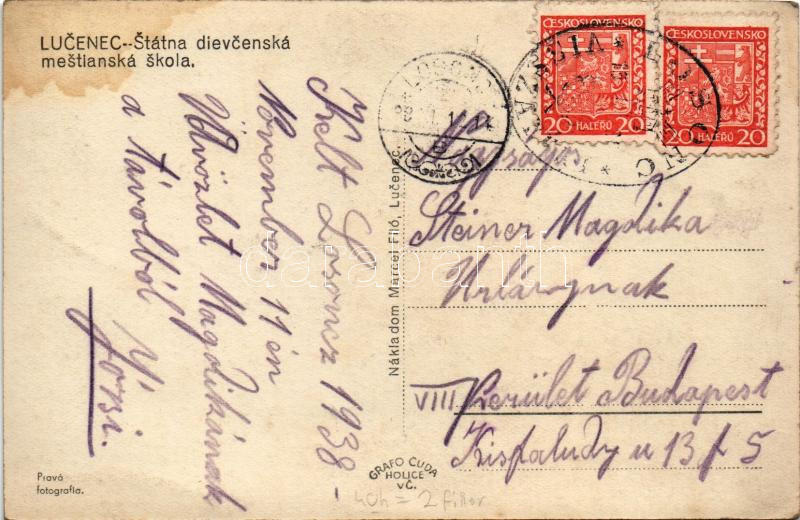 LUČENEC--Štátna dievčenská
meštianská škola.
Kelt Losoncz 1938-
November 11 én
Üdvözlet Magdikának
a távolból
Józsi.
Nákladom Marcel Filó, Lučenec
ČESKOSLOVENSKO
20 HALÉŘŮ 20
ČESKOSLOVENSKO
20 HALÉŘŮ 20
LOSONC
Nagyságos
Steiner Magdika
Urlánynak
VIII Kerület Budapest
Kisfaludy u 13 f 5
Pravá
fotografia.
GRAFO ČUDA
HOLICE
VČ.
40h = 2 fillér
darabanth